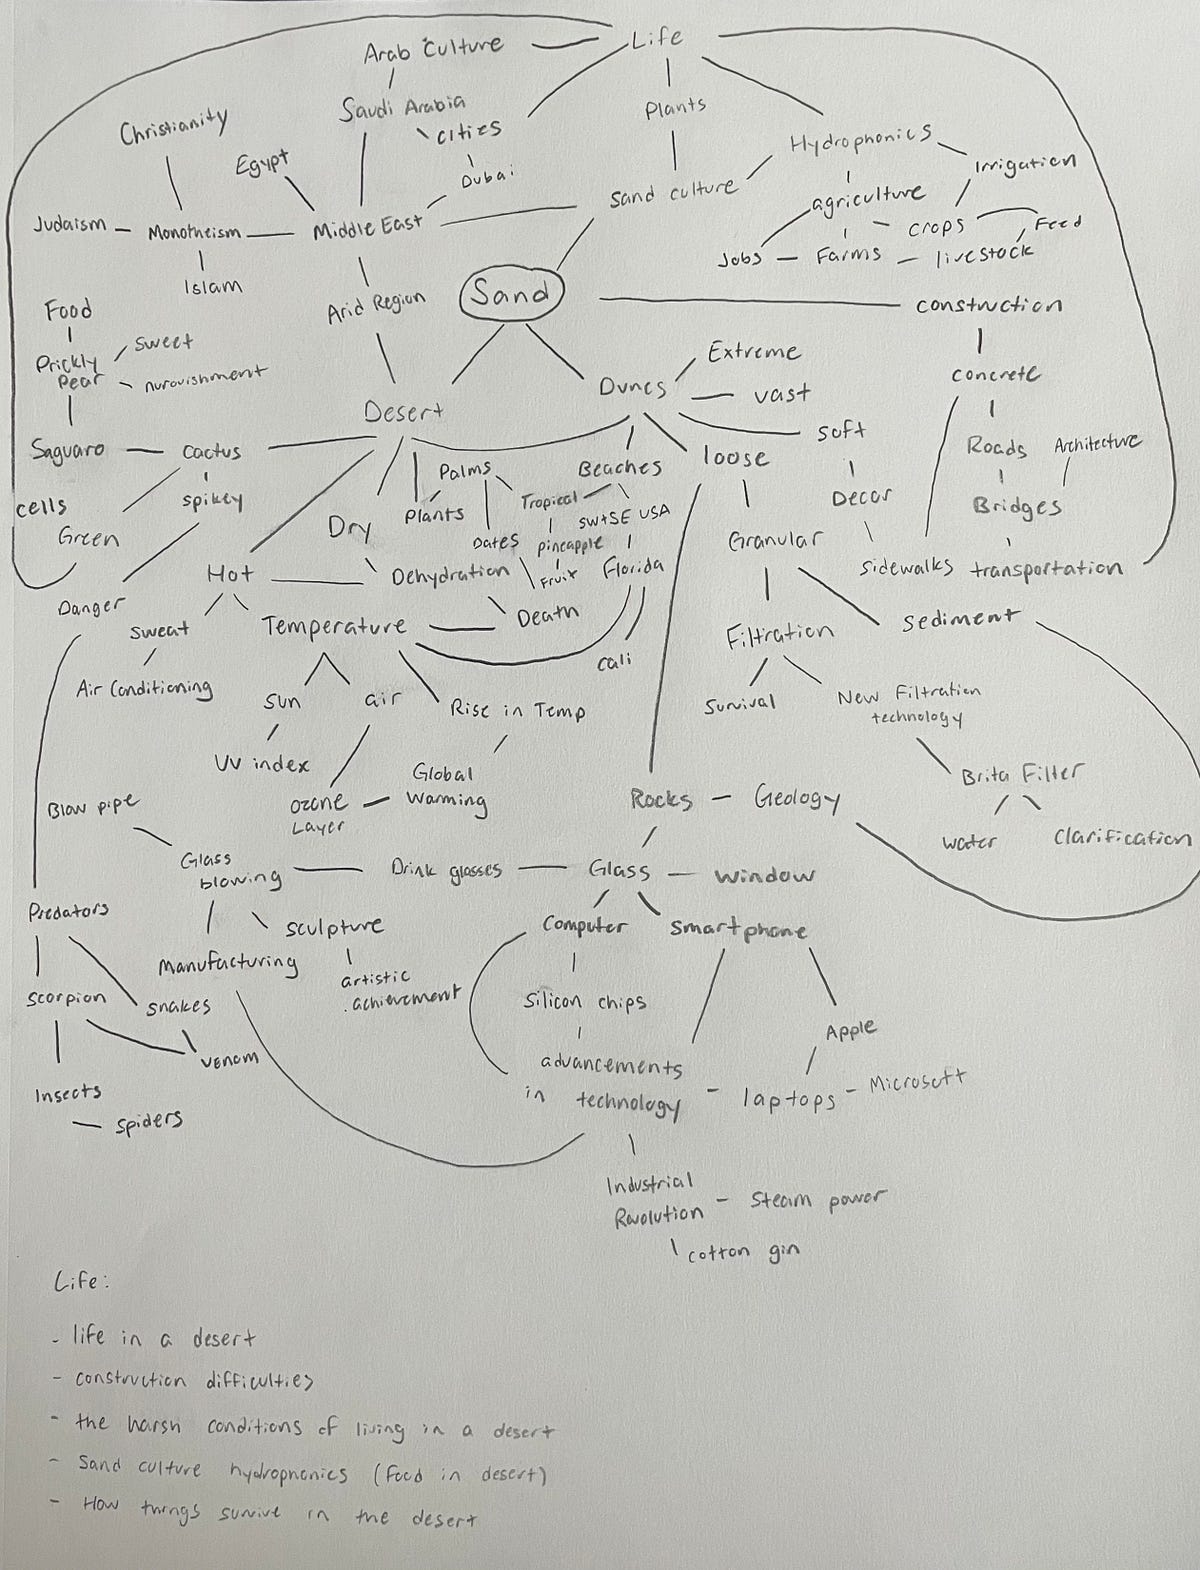 Life
Arab Culture
Saudi Arabia
Plants
Christianity
cities
Hydrophonics
Egypt
Irrigation
Dubai
Sand culture
agriculture
Judaism
Monotheism
Middle East
crops
Feed
Jobs
Farms
livestock
Islam
Arid Region
Sand
construction
Food
Prickly
Pear
sweet
nurouishment
Extreme
concrete
Dunes
vast
Desert
soft
Saguaro
cactus
Palms
Beaches
loose
Roads
Architecture
cells
spikey
Plants
Tropical
SW+SE USA
Decor
Bridges
Green
Dry
Dates
pineapple
Granular
Hot
Dehydration
Fruit
Florida
sidewalks
transportation
Danger
sweat
Temperature
Death
Filtration
sediment
cali
Air Conditioning
sun
air
Rise in Temp
Survival
New Filtration
technology
UV index
Global
Warming
Brita Filter
Blow pipe
ozone
Layer
Rocks
Geology
water
Clarification
Glass
blowing
Drink glasses
Glass
window
Predators
sculpture
Computer
smartphone
manufacturing
artistic
achievement
scorpion
snakes
silicon chips
Apple
venom
advancements
in technology
laptops
Microsoft
Insects
spiders
Industrial
Revolution
Steam power
cotton gin
Life:
- life in a desert
- construction difficulties
- the harsh conditions of living in a desert
- Sand culture hydrophonics (food in desert)
- How things survive in the desert